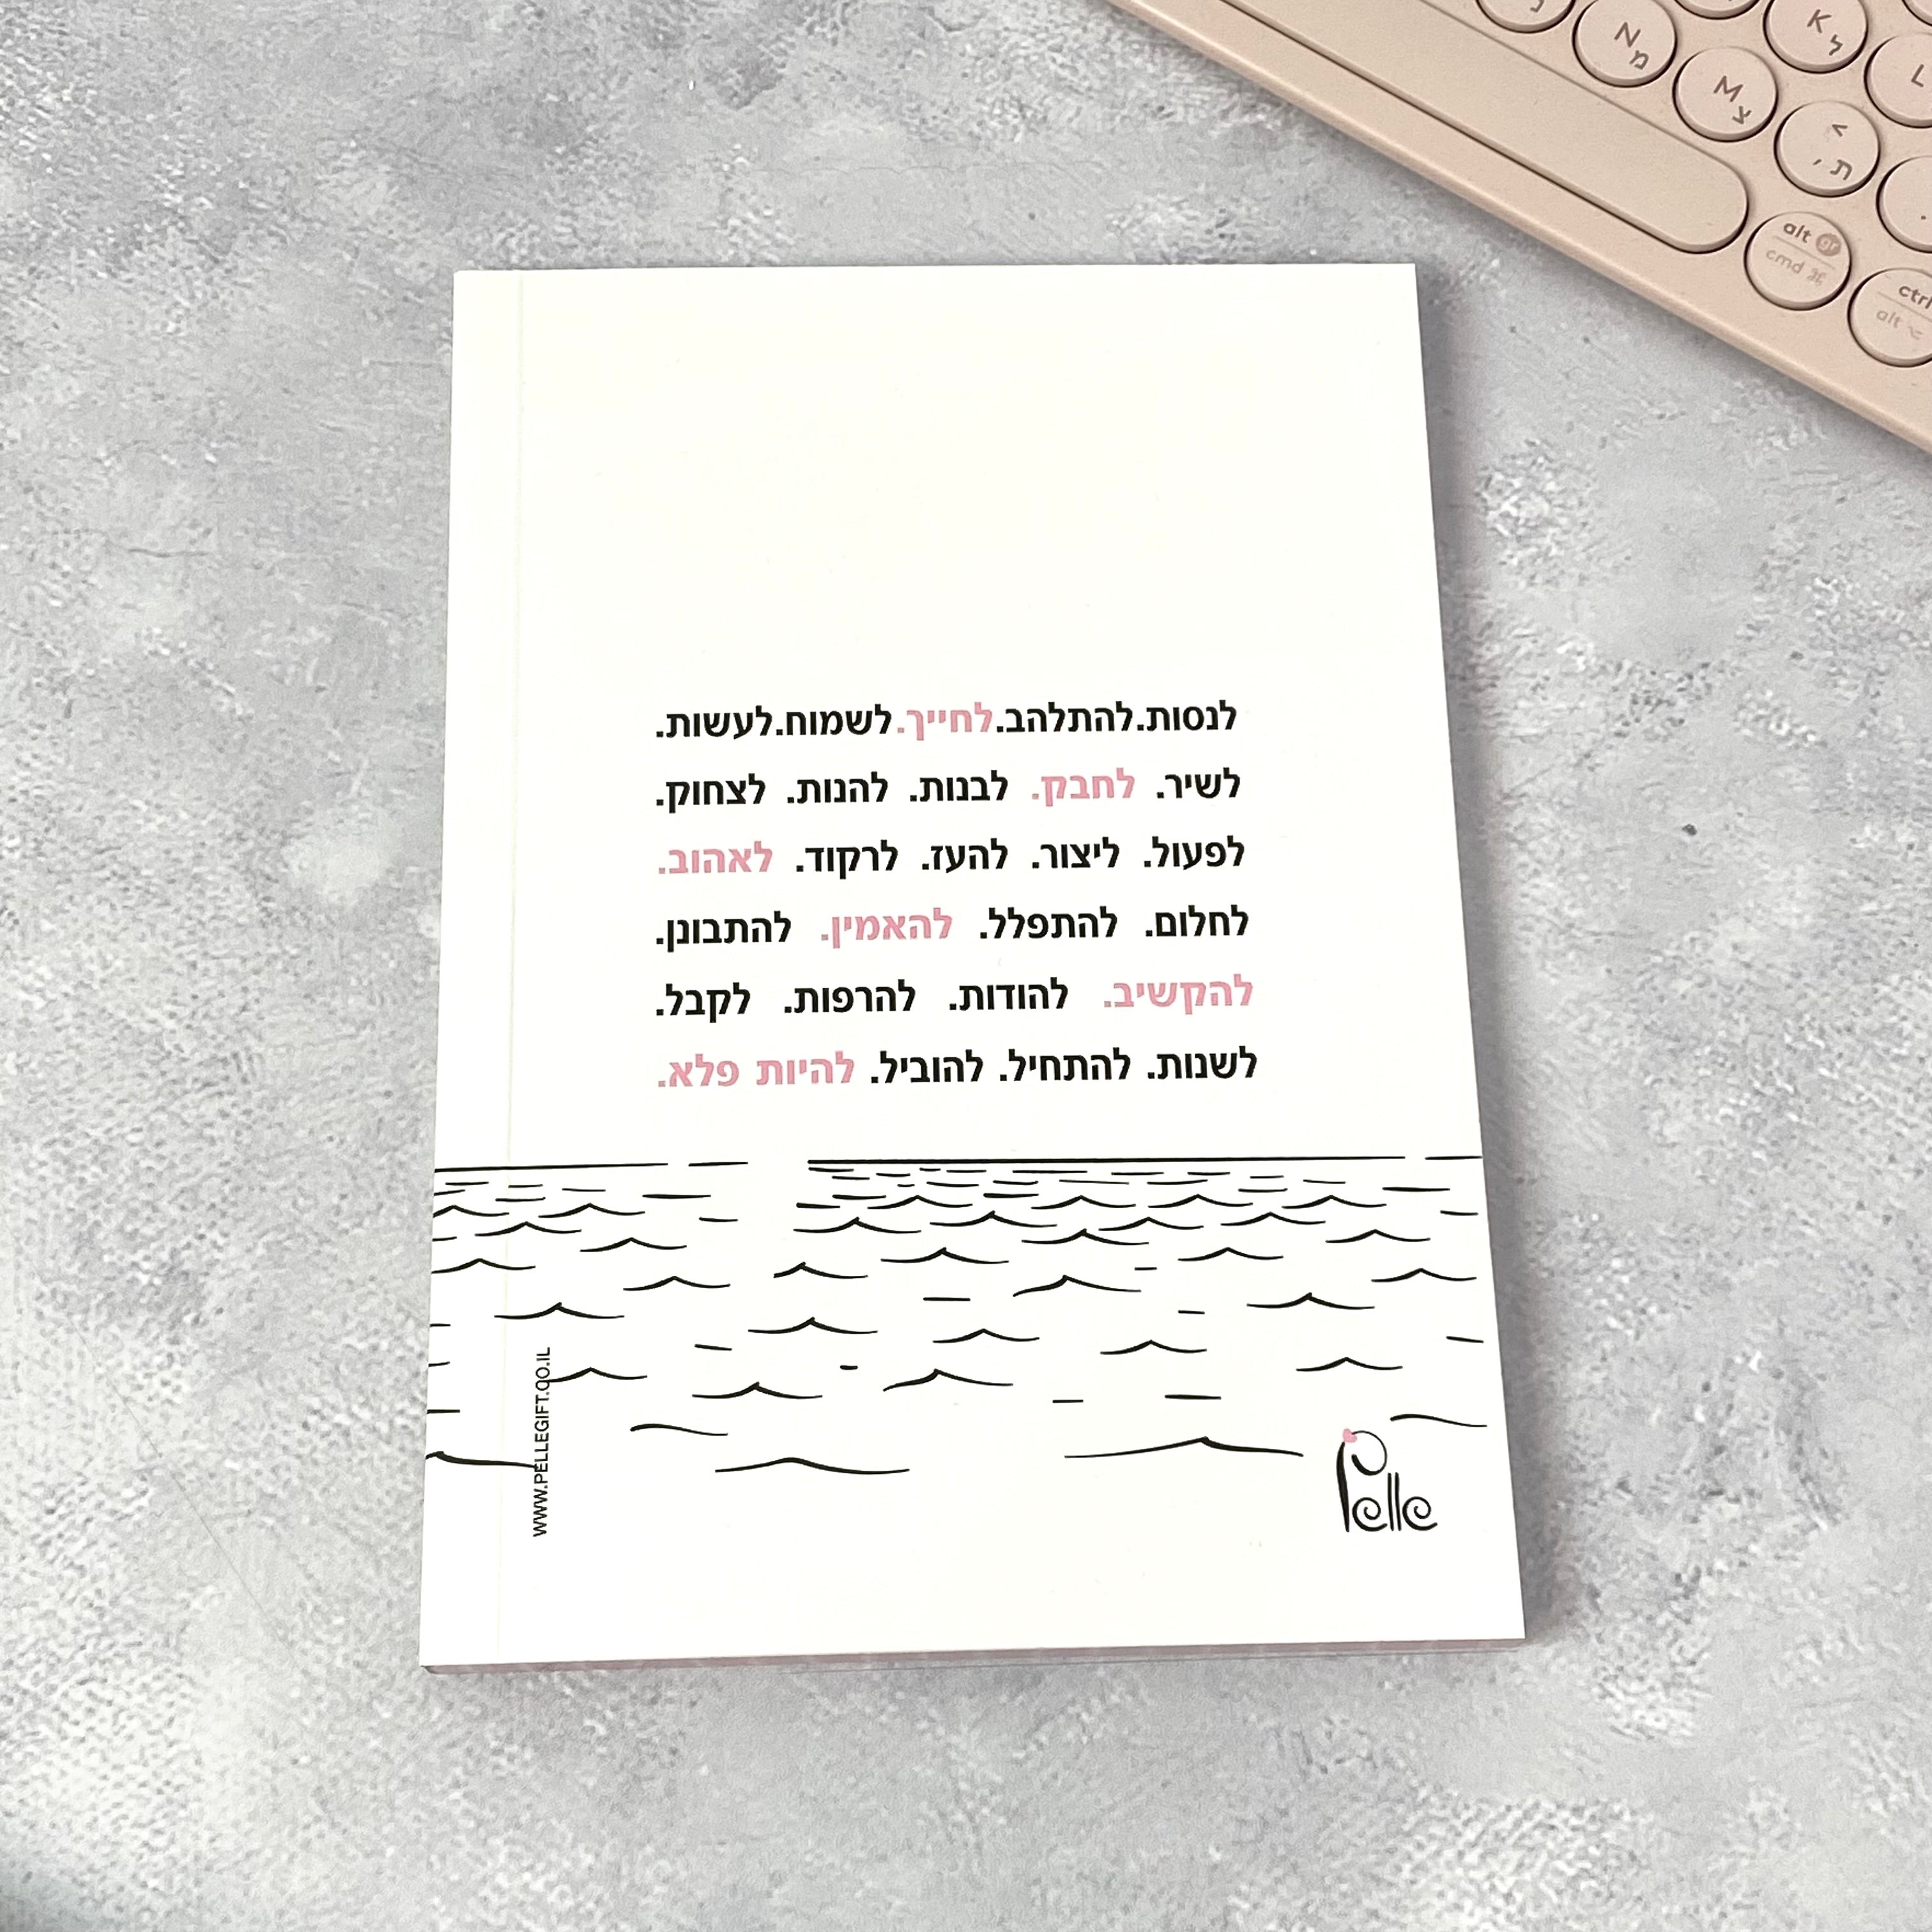 לנסות.להתלהב.לחייך.לשמוח.לעשות.
לשיר. לחבק. לבנות. להנות. לצחוק.
לפעול. ליצור. להעז. לרקוד. לאהוב.
לחלום. להתפלל. להאמין. להתבונן.
להקשיב. להודות. להרפות. לקבל.
לשנות. להתחיל. להוביל. להיות פלא.
WWW.PELLEGIFT.CO.IL
Pelle
K ל
N מ
L
M צ
< , ת
.
alt gr
cmd ⌘
ctrl
alt ⌥